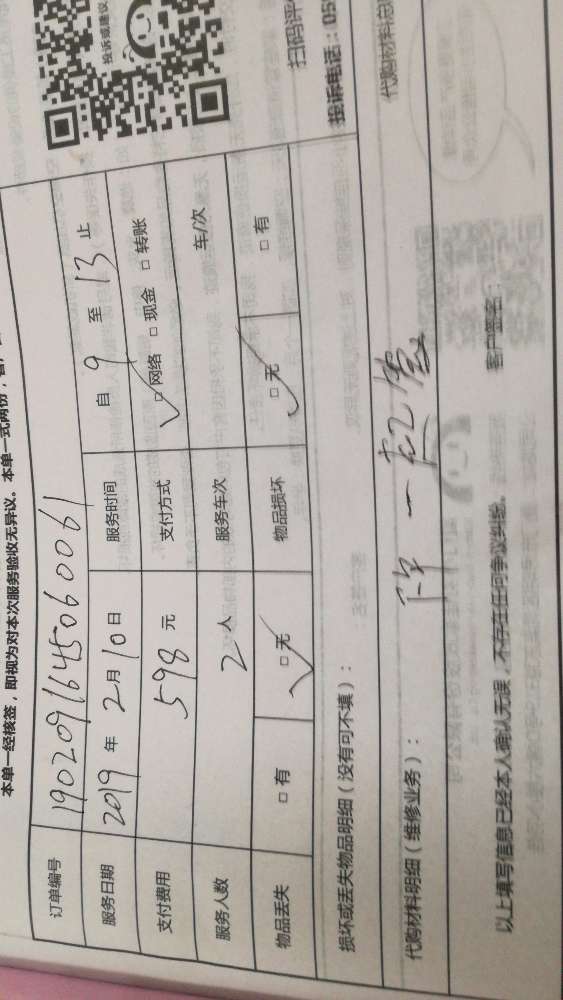 本单一经核签，即视为对本次服务验收无异议。本单一式两份，客户
订单编号 1902091645060061
服务日期 2019 年 2 月 10 日 服务时间 自 9 至 13 止
支付费用 598 元 支付方式 ☑网络 □现金 □转账
服务人数 2 人 服务车次 车/次
物品丢失 □有 ☑无 物品损坏 ☑无 □有
损坏或丢失物品明细（没有可不填）：
代购材料明细（维修业务）： 代购材料总
以上填写信息已经本人确认无误，不存在任何争议纠纷。 客户签名：
投诉或建议
扫码评
投诉电话：05